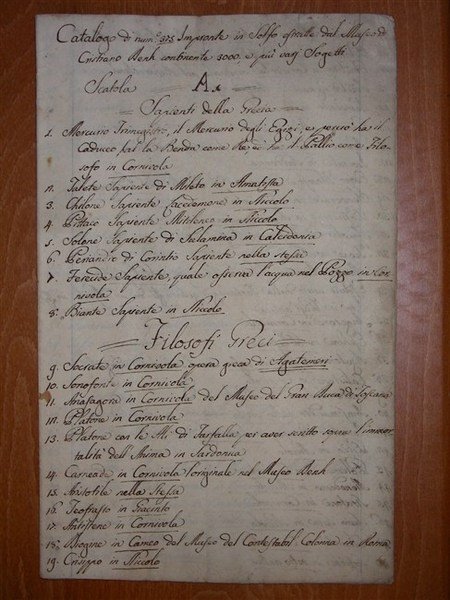 Catalogo di num.º 375 Impronte in Solfo estratte dal Museo di
Cristiano Denh continente 3000. e più varj Sogetti
Scatola A.
Sapienti della Grecia
1. Mercurio Trimegistro, il Mercurio degli Egizj, e perciò ha il
Caduceo, poi la Benda come Re, ed ha il Pallio come Filo-
sofo in Corniola
2. Talete Sapiente di Mileto in Amatista
3. Chilone Sapiente Lacedemone in Niccolo
4. Pittaco Sapiente Mitileneo in Niccolo
5. Solone Sapiente di Salamina in Calcidonia
6. Periandro di Corinto Sapiente nella stessa
7. Ferecide Sapiente, quale osserva l'acqua nel Pozzo in Cor-
niola
8. Biante Sapiente in Niccolo
Filosofi Greci
9. Socrate in Corniola opera greca di Agatemeri
10. Senofonte in Corniola
11. Anasagora in Corniola del Museo del Gran Duca di Toscana
12. Platone in Corniola
13. Platone con le Ali di Farfalla per aver scritto sopra l'immor-
talità dell'Anima in Sardonica
14. Carneade in Corniola l'originale nel Museo Denh
15. Aristotile nella Stessa
16. Teofrasto in Giacinto
17. Antistene in Corniola
18. Diogine in Cameo del Museo del Contestabil Colonna in Roma
19. Crisippo in Niccolo